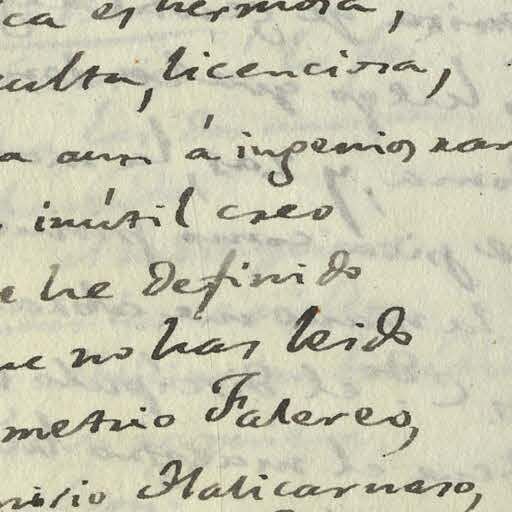 ica es hermosa,
culta, licenciosa,
a aun á ingenios rar
inútil creo
e he definido
ue no has leido
metrio Falereo,
nisio Halicarnaso,